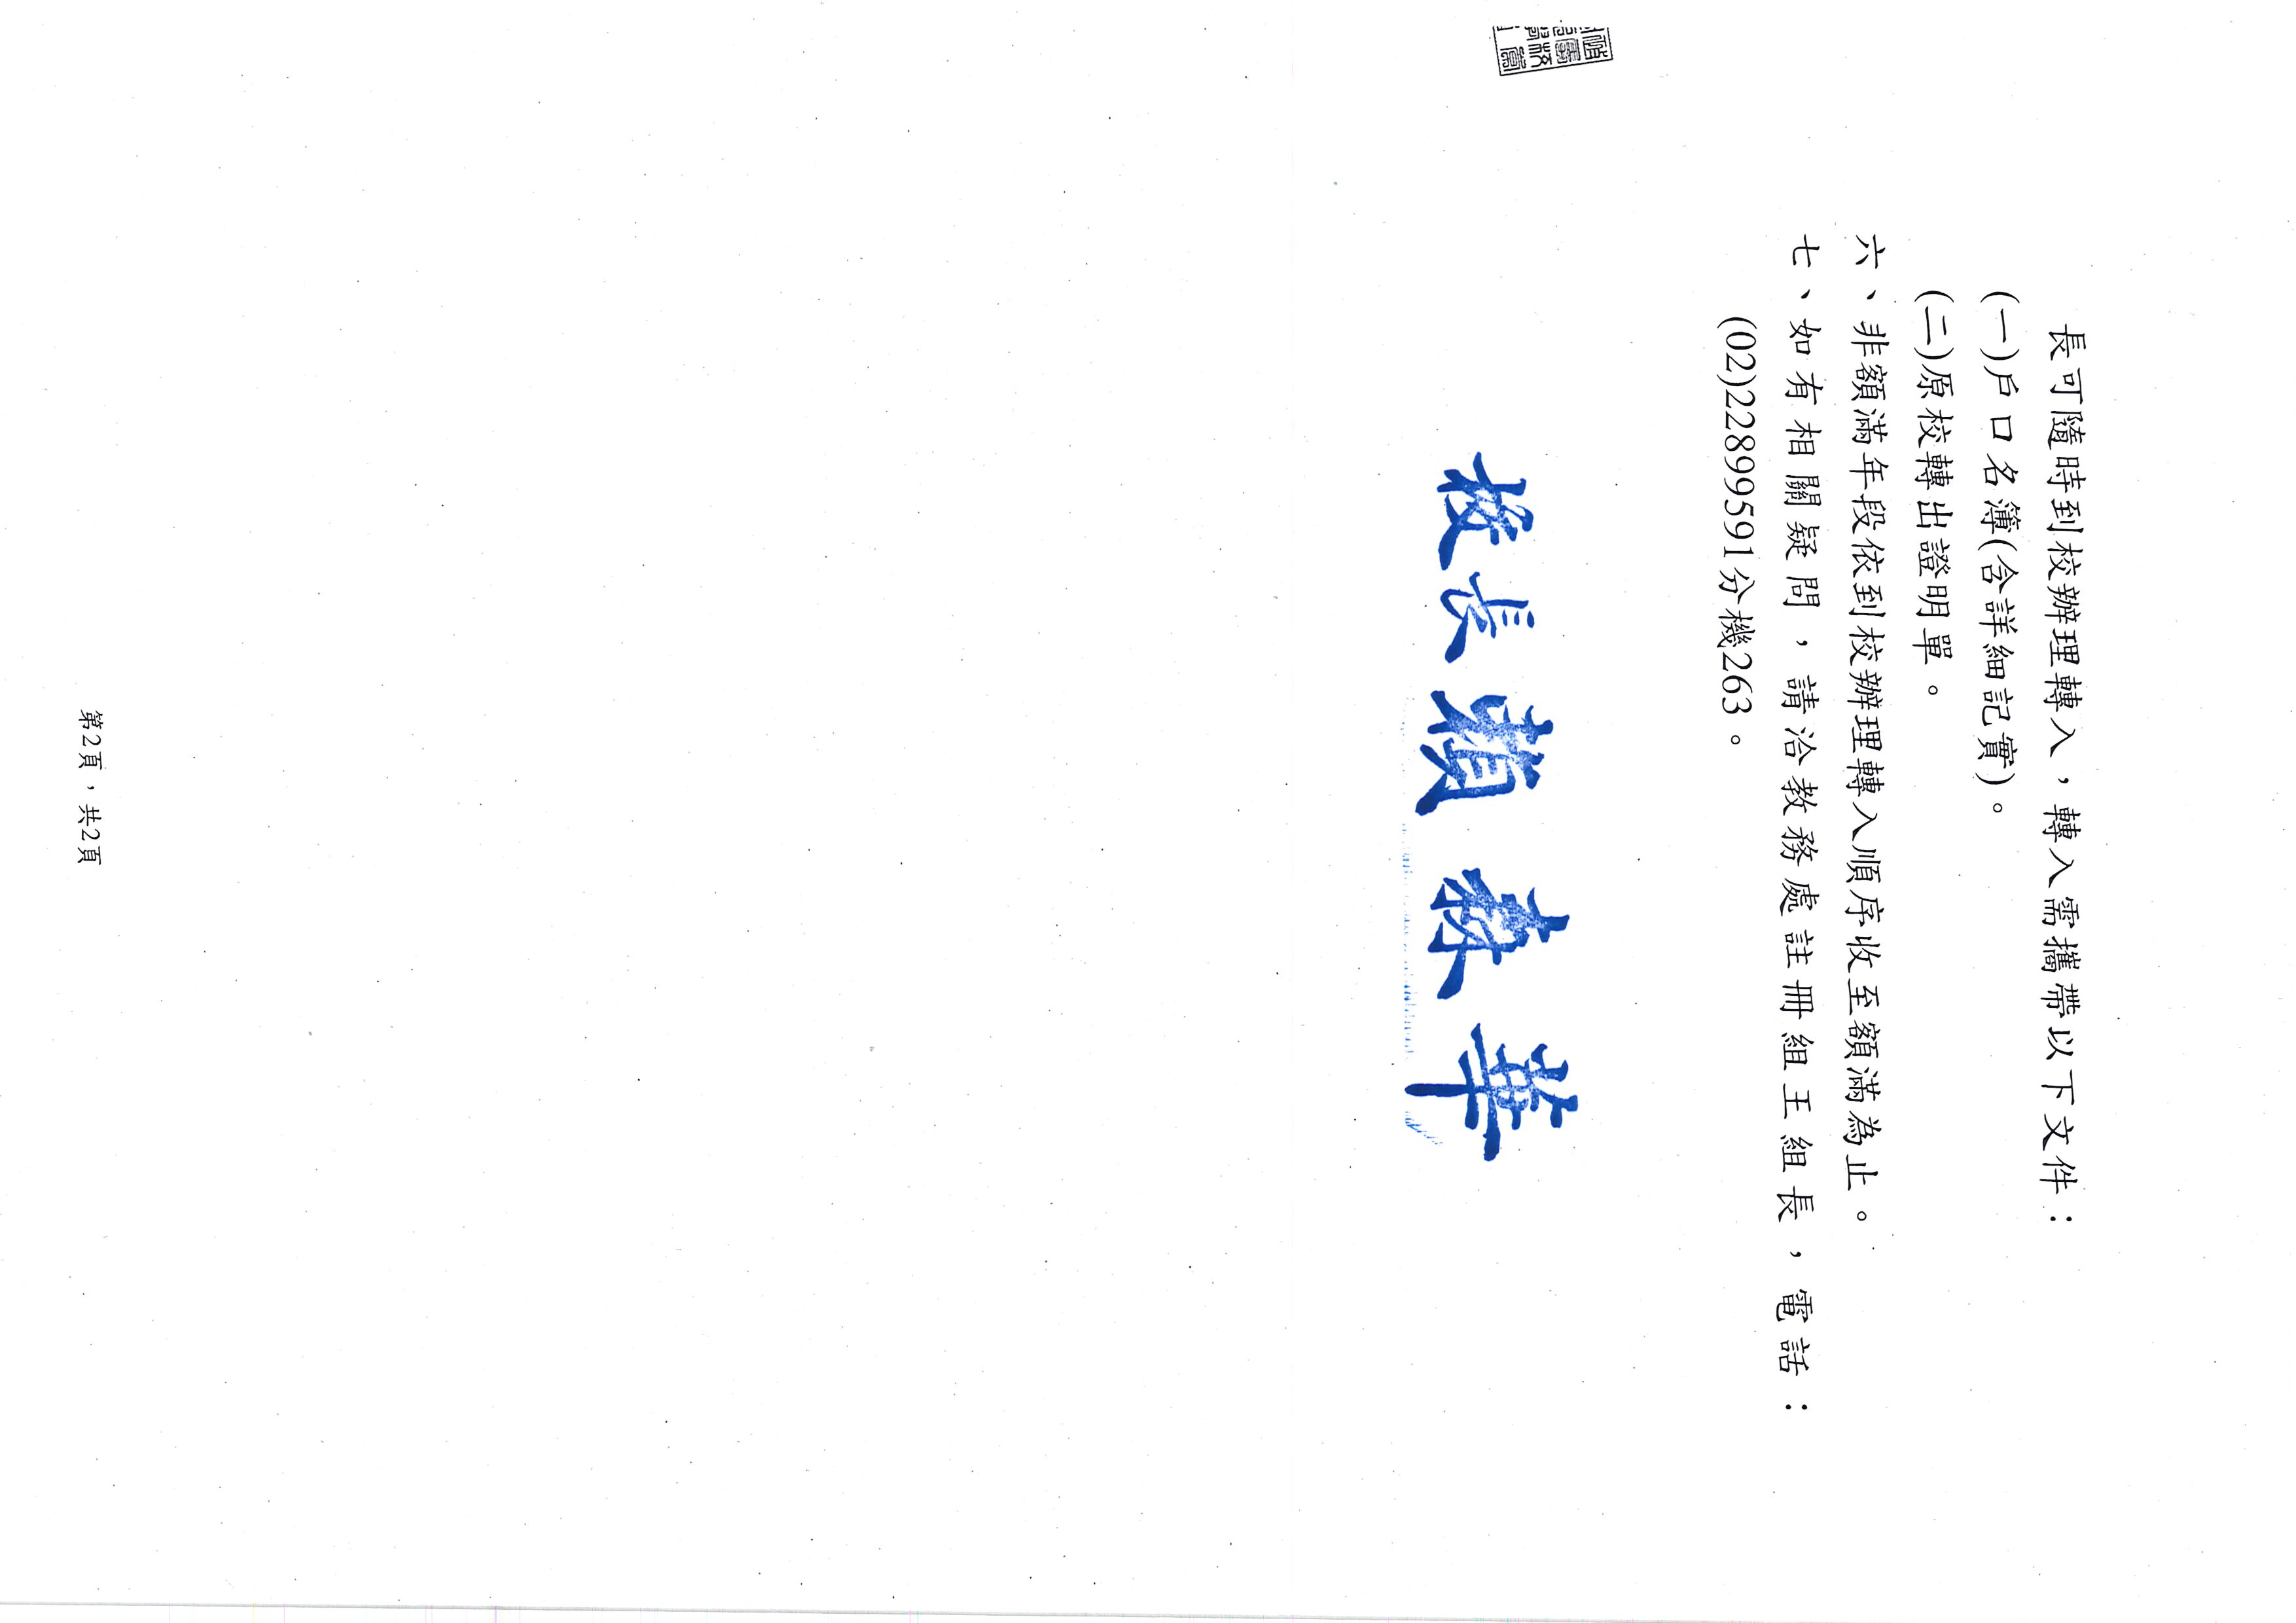 長可隨時到校辦理轉入，轉入需攜帶以下文件：
(一)戶口名簿(含詳細記實)。
(二)原校轉出證明單。
六、非額滿年段依到校辦理轉入順序收至額滿為止。
七、如有相關疑問，請洽教務處註冊組王組長，電話：
(02)22899591分機263。
校長 賴 春 華
第2頁，共2頁